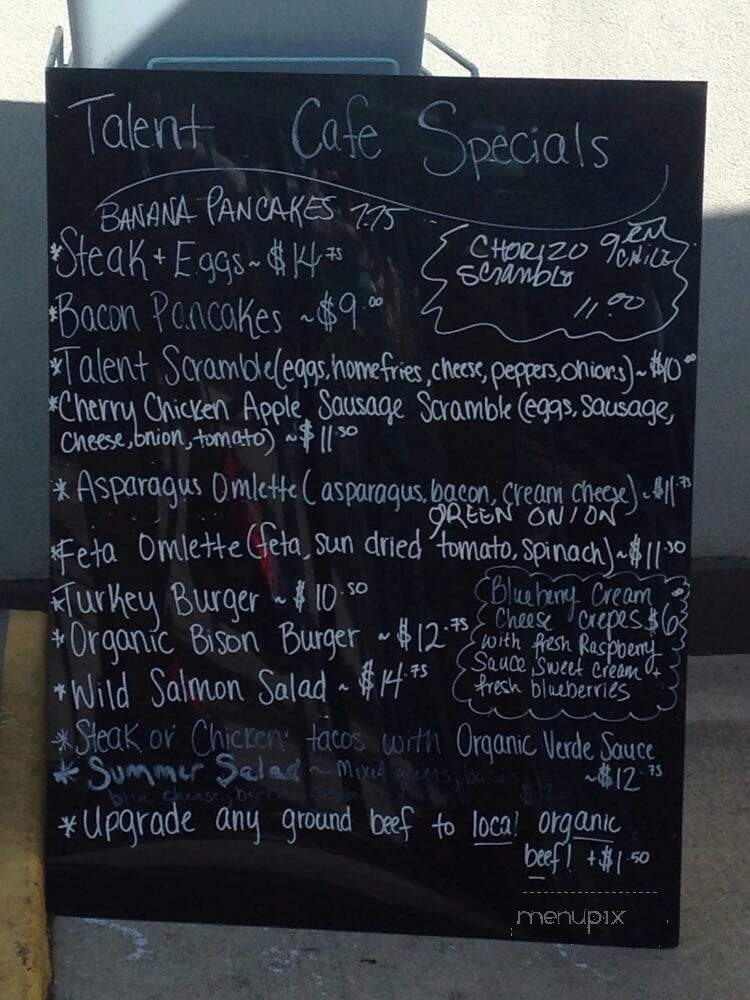 Talent Cafe Specials
BANANA PANCAKES 7.75
*Steak + Eggs ~ $14.75
CHORIZO GRN CHILE
SCRAMBLE
11.00
*Bacon Pancakes ~ $9.00
*Talent Scramble (eggs, homefries, cheese, peppers, onions) ~ $10.00
*Cherry Chicken Apple Sausage Scramble (eggs, sausage,
cheese, onion, tomato) ~ $11.50
* Asparagus Omlette (asparagus, bacon, cream cheese) ~ $11.75
GREEN ONION
*Feta Omlette (feta, sun dried tomato, spinach) ~ $11.50
*Turkey Burger ~ $10.50
*Organic Bison Burger ~ $12.75
*Wild Salmon Salad ~ $14.75
Blueberry Cream
Cheese crepes $6.00
with fresh Raspberry
Sauce, Sweet cream +
fresh blueberries
*Steak or Chicken tacos with Organic Verde Sauce
~ $12.75
* Summer Salad ~ Mixed greens, bacon
blue cheese,
*Upgrade any ground beef to local organic
beef! + $1.50
menupix